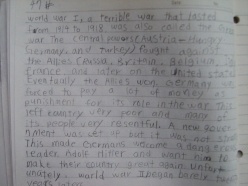 World War I, a terrible war that lasted
from 1914 to 1918, was also called the
war. The central powers (Austria-Hungary
Germany, and Turkey) fought against
the Allies (Russia, Britain, Belgium,
France, and later on the United States
Eventually the Allies won. Germany
forced to pay a lot of money as
punishment for its role in the war. This
left country very poor and many of
its people very resentful. A new
nment was set up but it was not
This made Germans welcome a
leader Adolf Hitler and want him to
make their country great again.
unately, world war II began barely
years